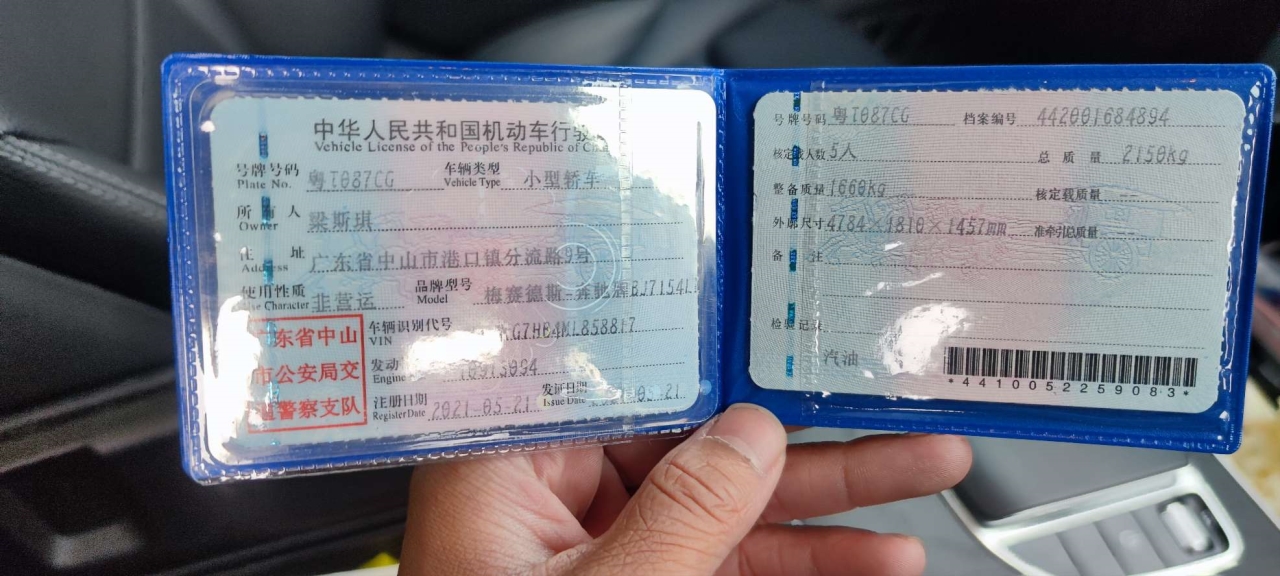 中华人民共和国机动车行驶
Vehicle License of the People's Republic of Ch
号牌号码 粤T087CG 车辆类型 小型轿车
Plate No. Vehicle Type
所有人 梁斯琪
Owner
住址 广东省中山市港口镇分流路9号
Address
使用性质 非营运 品牌型号 梅赛德斯-奔驰牌BJ7154L
Use Character Model
广东省中山
市公安局交
警察支队
车辆识别代号 G7HB4ML858817
VIN
发动
Engine
注册日期 2021-05-21 发证日期
Register Date Issue Date
号牌号码 粤T087CG 档案编号 442001684894
核定载人数 5人 总质量 2150kg
整备质量 1660kg 核定载质量 --
外廓尺寸 4784×1810×1457mm 准牵引总质量 --
备注
检验记录
汽油
*4410052259083*